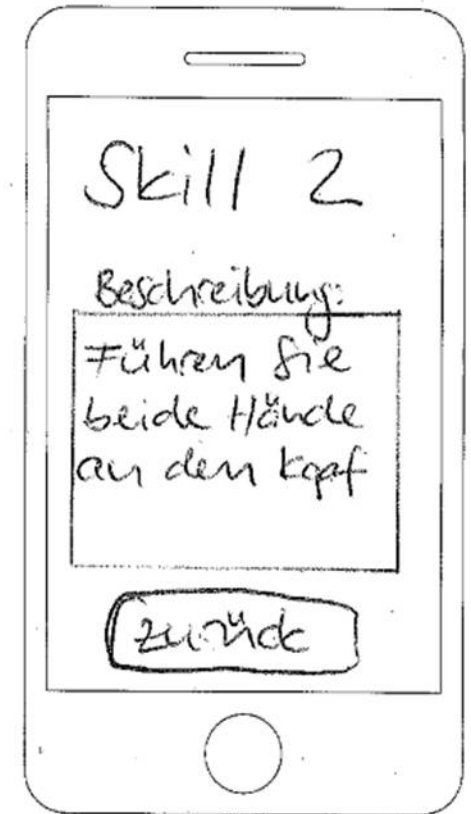 Skill 2
Beschreibung:
Führen Sie
beide Hände
an den Kopf
zurück